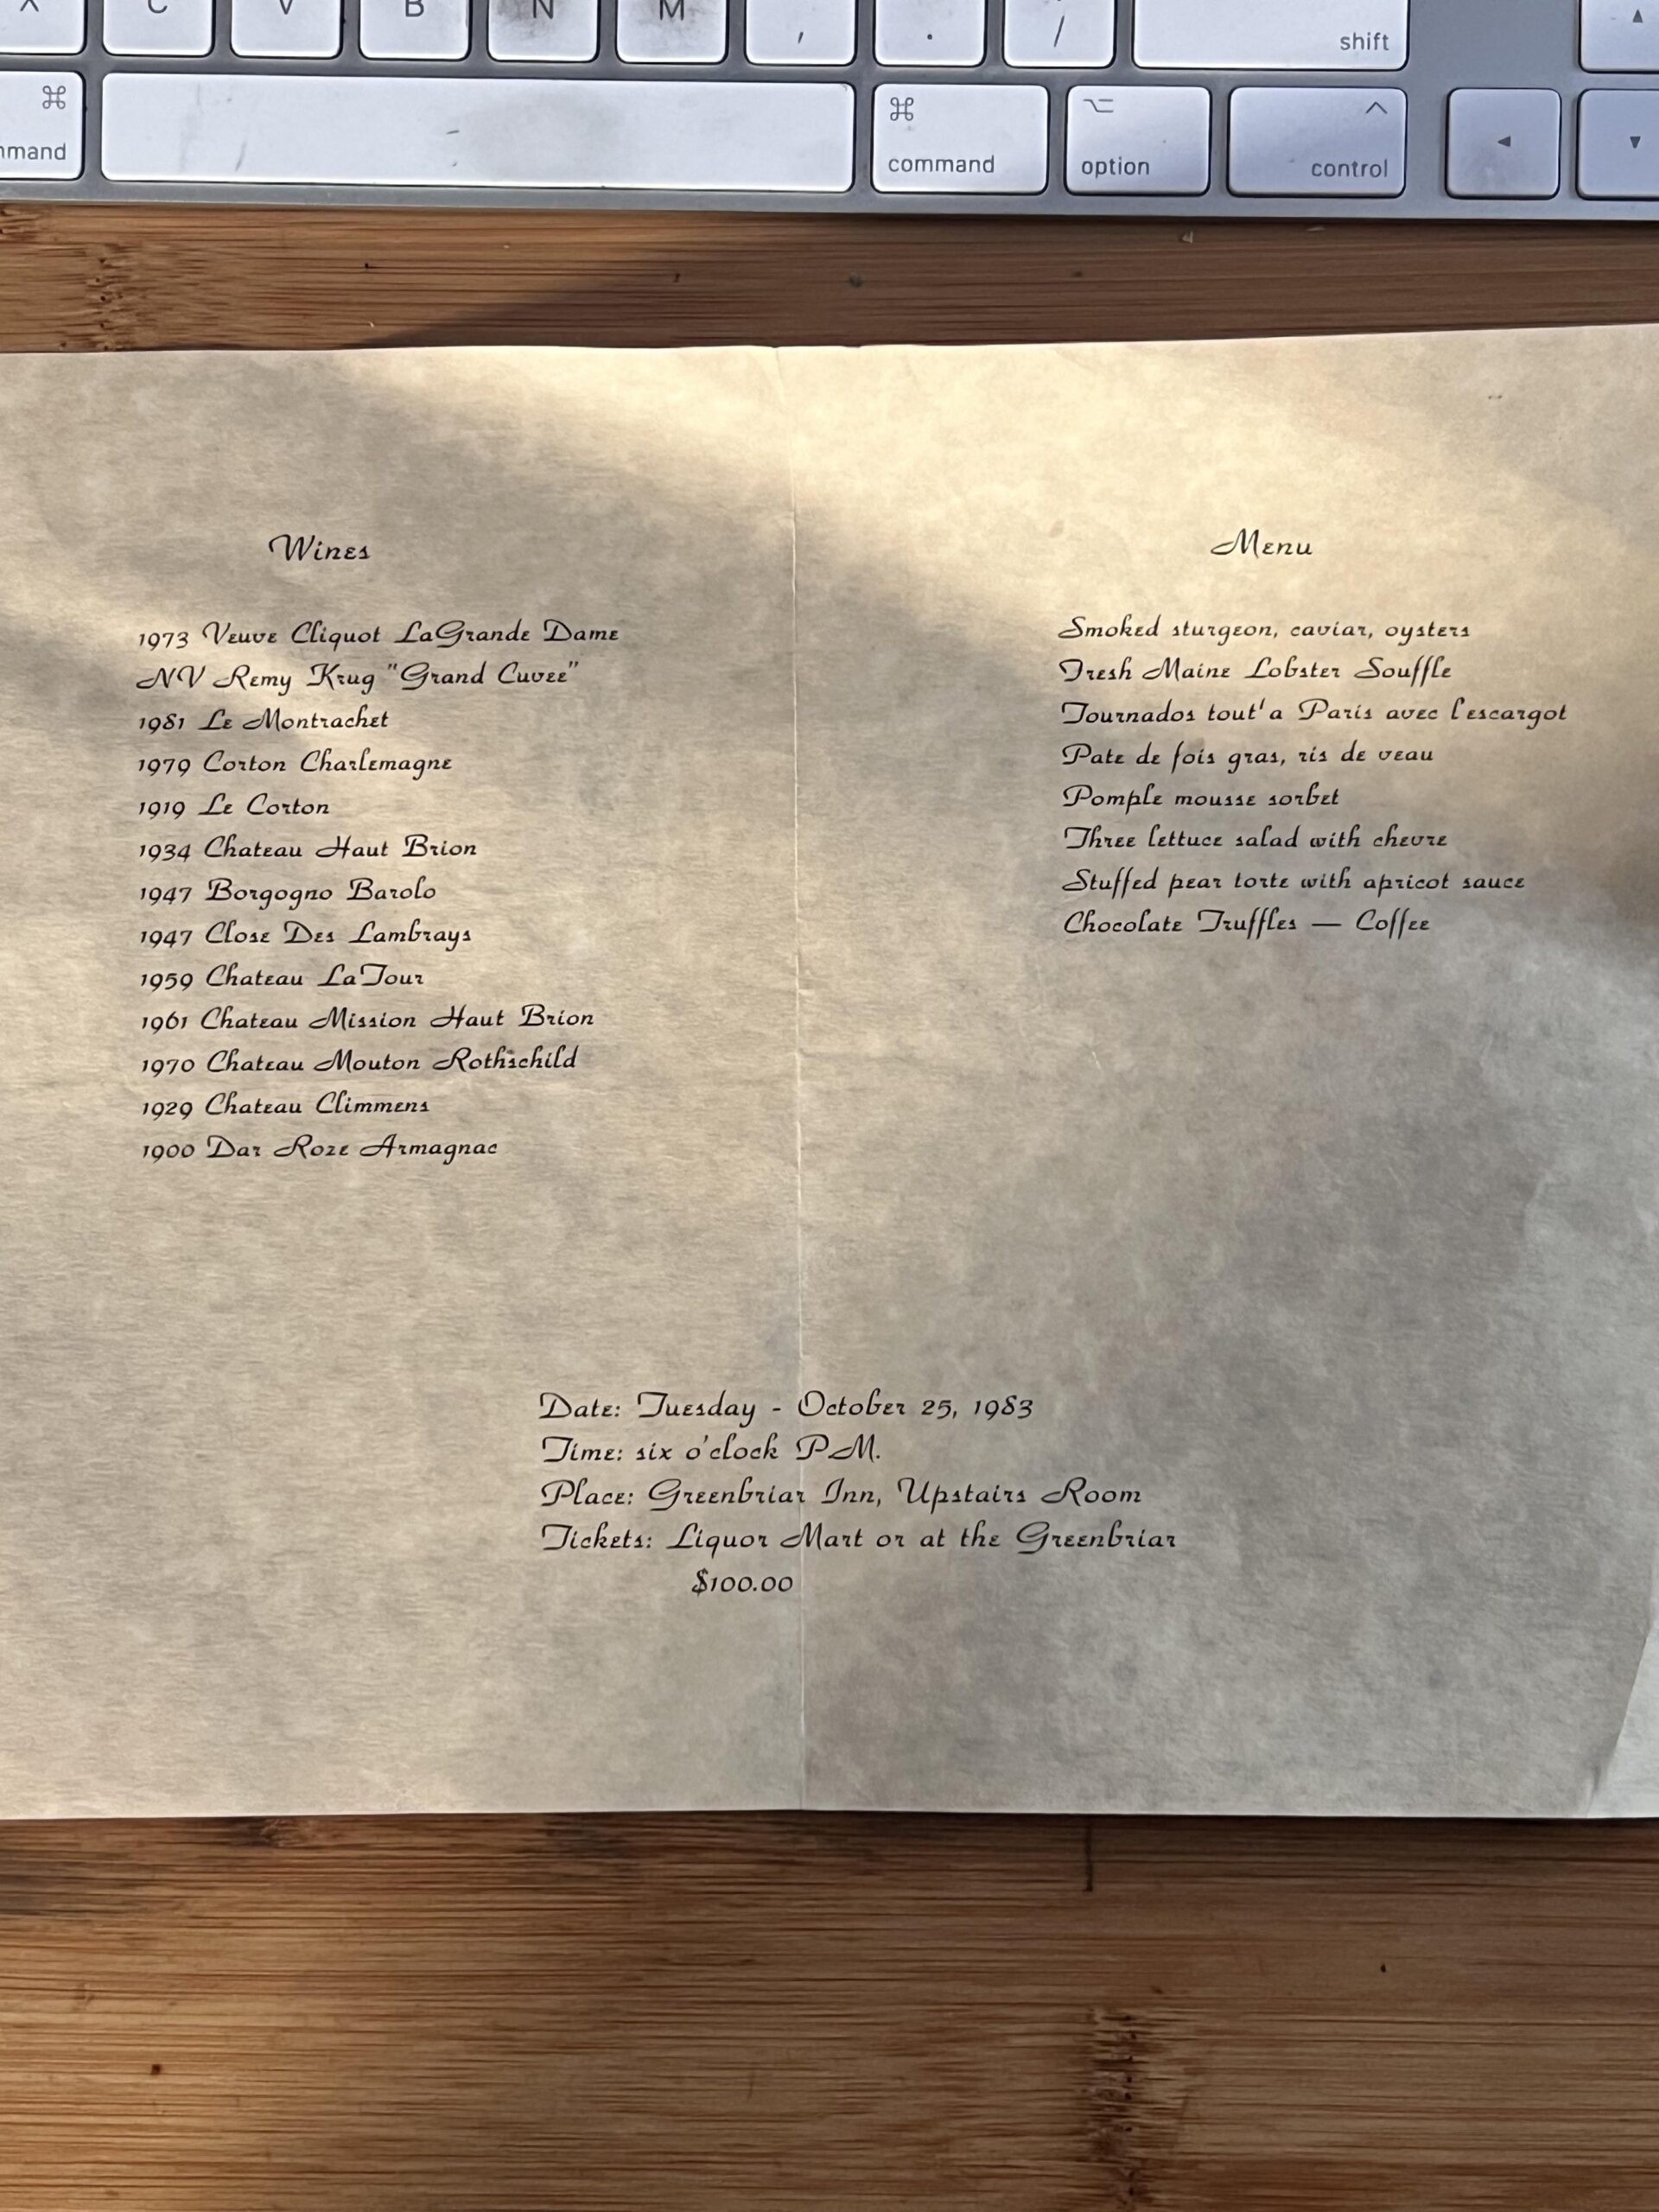 X C V B N M , . / shift
⌘ ⌘ ⌥ ^
command option control
Wines
1973 Veuve Cliquot LaGrande Dame
NV Remy Krug "Grand Cuvee"
1981 Le Montrachet
1979 Corton Charlemagne
1919 Le Corton
1934 Chateau Haut Brion
1947 Borgogno Barolo
1947 Close Des Lambrays
1959 Chateau LaTour
1961 Chateau Mission Haut Brion
1970 Chateau Mouton Rothschild
1929 Chateau Climmens
1900 Dar Roze Armagnac
Menu
Smoked sturgeon, caviar, oysters
Fresh Maine Lobster Souffle
Tournados tout'a Paris avec l'escargot
Pate de fois gras, ris de veau
Pomple mousse sorbet
Three lettuce salad with chevre
Stuffed pear torte with apricot sauce
Chocolate Truffles — Coffee
Date: Tuesday - October 25, 1983
Time: six o'clock P.M.
Place: Greenbriar Inn, Upstairs Room
Tickets: Liquor Mart or at the Greenbriar
$100.00